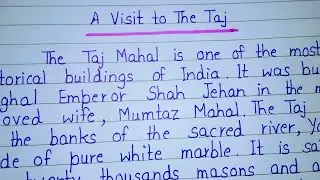 A Visit to The Taj
The Taj Mahal is one of the most
torical buildings of India. It was bu
ghal Emperor Shah Jehan in the m
oved wife, Mumtaz Mahal. The Taj
the banks of the sacred river, Ya
de of pure white marble. It is sai
twenty thousands masons and a